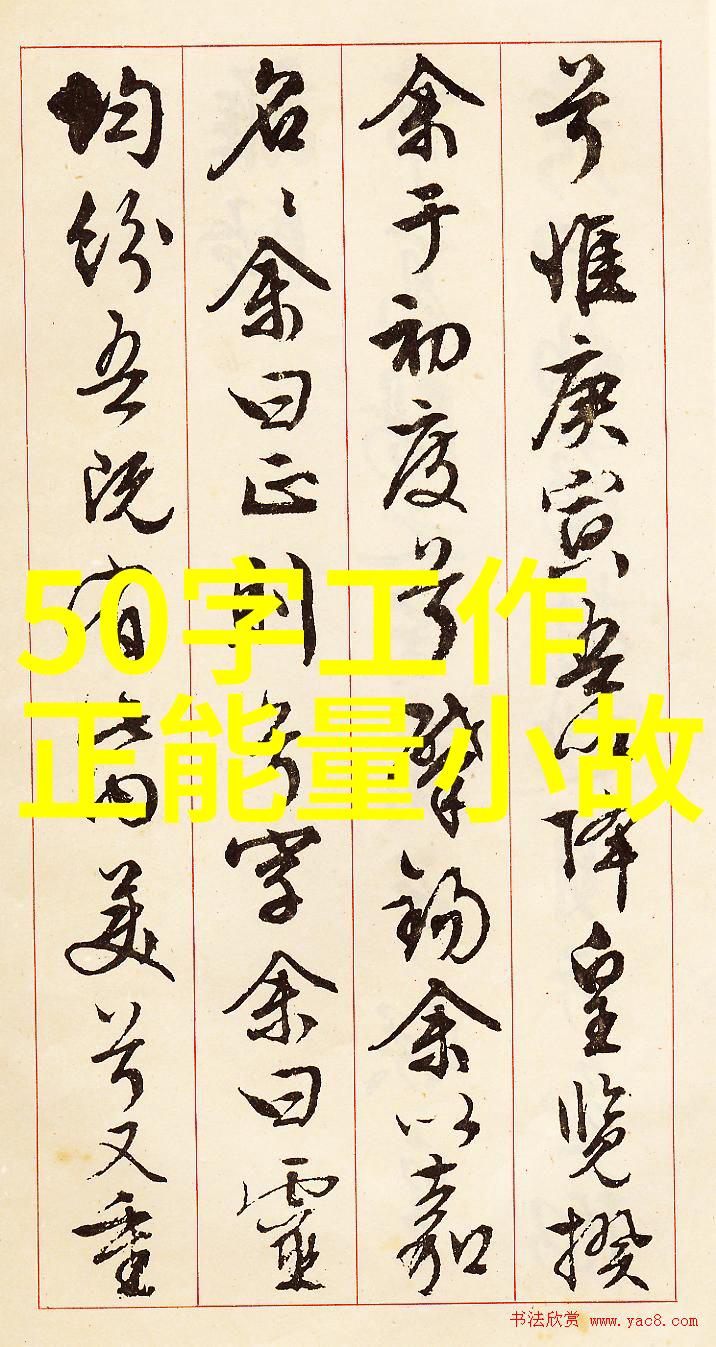 兮惟庚寅吾以降皇览揆
余于初度兮肇锡余以嘉
名〻余曰正则兮字余曰灵
均纷吾既有此内美兮又重
50字工作
正能量小故
书法欣赏 www.yac8.com